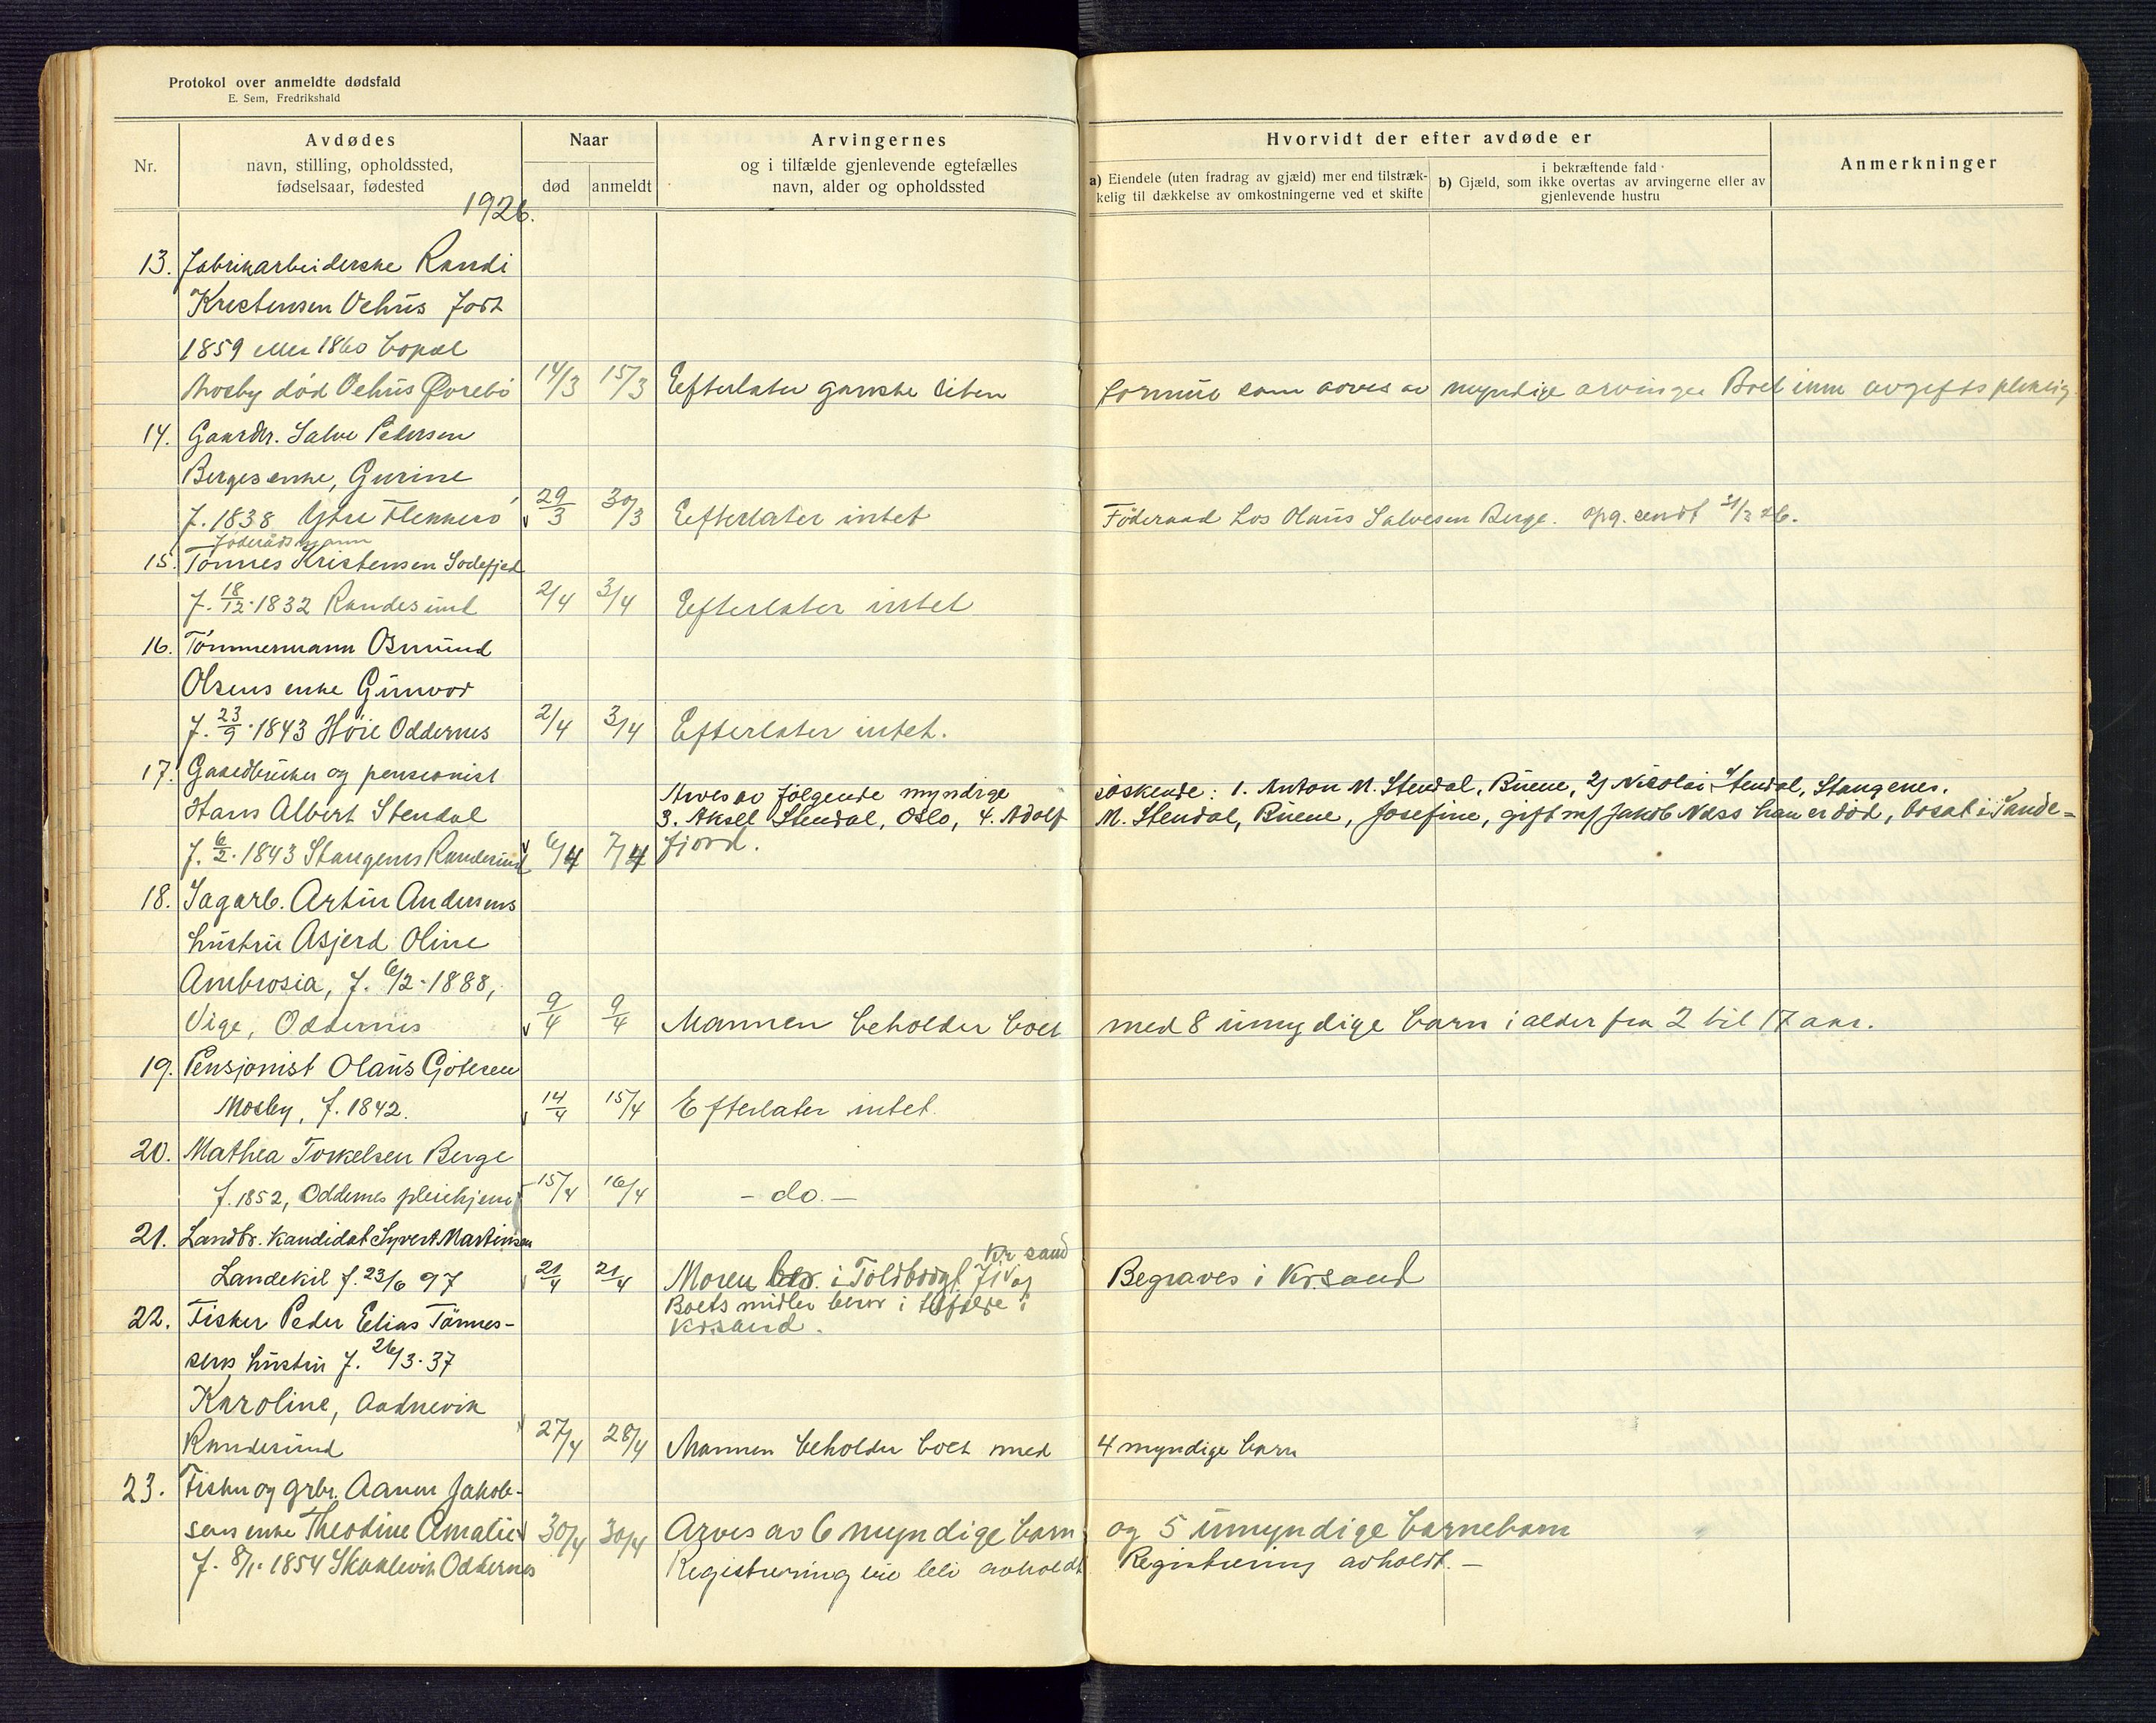 Protokol over anmeldte dødsfald
E. Sem, Fredrikshald
Nr.
Avdødes
navn, stilling, opholdssted,
fødselsaar, fødested
Naar
død
anmeldt
Arvingernes
og i tilfælde gjenlevende egtefælles
navn, alder og opholdssted
Hvorvidt der efter avdøde er
a) Eiendele (uten fradrag av gjæld) mer end tilstræk-
kelig til dækkelse av omkostningerne ved et skifte
i bekræftende fald
b) Gjæld, som ikke overtas av arvingerne eller av
gjenlevende hustru
Anmerkninger
1926.
13. Fabrikarbeiderske Randi
Kristensen Vehus født
1859 eller 1860 bopæl
Mosby død Vehus Øvrebø 14/3 15/3 Efterlater ganske liten formue som arves av myndige arvinger Boet inn avgiftspliktig
14. Gaardbr. Salve Pedersen
Berges enke, Gurine
f. 1838 Ytre Flekkerø 29/3 30/3 Efterlater intet Föderaad hos Olaus Salvesen Berge. opg. sendt 31/3 26.
Föderådsmann
15. Tönnes Kristensen Sodefjed
f. 18/12. 1832 Randesund 2/4 3/4 Efterlater intet
16. Tömmermann Osmund
Olsens enke Gunvor
f. 23/9. 1843 Höie Oddernes 2/4 3/4 Efterlater intet.
17. Gaardbruker og pensionist
Hans Albert Stendal
Arves av følgende myndige søskende: 1. Anton M. Stendal, Buene, 2) Nicolai Stendal, Stangenes.
3. Aksel Stendal, Oslo, 4. Adolf M. Stendal, Buene, Josefine, gift m/ Jakob Næss han er död, bosat i Sande-
f. 6/2. 1843 Stangenes Randesund 6/4 7/4 fjord.
18. Sagarb. Artur Andersens
hustru Asjerd Oline
Ambrosia, f. 6/2. 1888,
Vige, Oddernes 9/4 9/4 Mannen beholder boet med 8 umydige barn i alder fra 2 til 17 aar.
19. Pensjonist Olaus Götesen
Mosby, f. 1842. 14/4 15/4 Efterlater intet.
20. Mathea Torkelsen Berge
f. 1852, Oddernes pleiehjem 15/4 16/4 - do. -
21. Landbr. kandidat Syvert Martinsen
Kr sand
Landekil f. 23/6 97 21/4 21/4 Moren bor i Toldbodgt. Begraves i Kr.sand
Boets midler beror i tilfælde i
Krsand.
22. Fisker Peder Elias Tönnes-
sens hustru f. 26/3. 37
Karoline, Aadnevik
Randesund 27/4 28/4 Mannen beholder boet med 4 myndige barn
23. Fisker og grbr. Aanen Jakob-
sens enke Theodine Amalie 30/4 30/4 Arves av 6 myndige barn og 5 umyndige barnebarn
f. 8/1. 1854 Skaalevik Oddernes Registrering vil bli avholdt Registrering avholdt. -